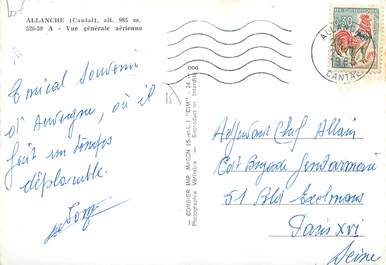 ALLANCHE (Cantal), alt. 985 m.
526-59 A - Vue générale aérienne
0,30
CANTAL
Amical Souvenir
d'Auvergne, où il
fait un temps
déplorable.
COMBIER IMP. MACON (S.-et-L.) "CIM"
Photographie Véritable - Reproduction Interdite
Adjudant Chef Allain
Cdt Brigade Gendarmerie
51 Bld Exelmans
Paris XVI
Seine